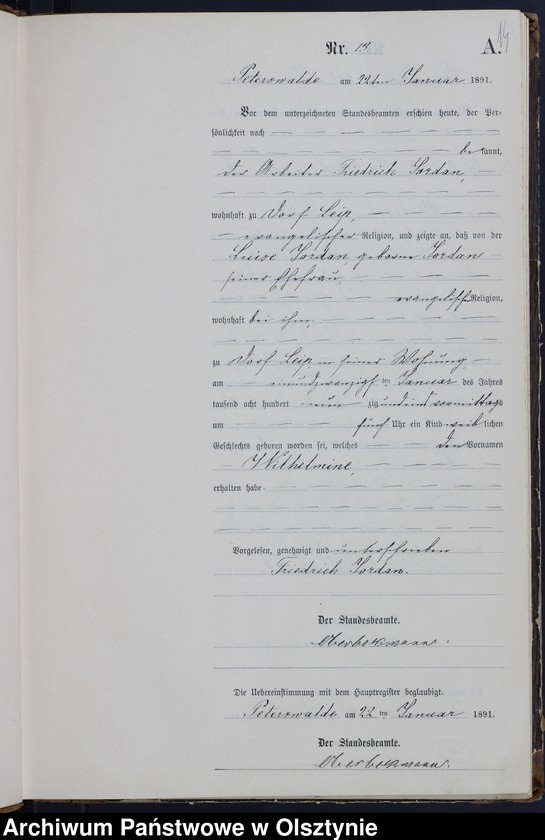 14
Nr. 13 A.
Peterswalde am 22ten Januar 1891.
Vor dem unterzeichneten Standesbeamten erschien heute, der Per-
sönlichkeit nach
be kannt,
der Arbeiter Friedrich Jordan,
wohnhaft zu Dorf Leip,
evangelischer Religion, und zeigte an, daß von der
Luise Jordan, geborne Jordan
seiner Ehefrau,
evangelischer Religion,
wohnhaft bei ihm,
zu Dorf Leip in seiner Wohnung
am einundzwanzigsten Januar des Jahres
tausend acht hundert neunzig und eins vormittags
um fünf Uhr ein Kind weiblichen
Geschlechts geboren worden sei, welches den Vornamen
Wilhelmine,
erhalten habe.
Vorgelesen, genehmigt und unterschrieben
Friedrich Jordan.
Der Standesbeamte.
Die Uebereinstimmung mit dem Hauptregister beglaubigt.
Peterswalde am 22ten Januar 1891.
Der Standesbeamte.
Archiwum Państwowe w Olsztynie